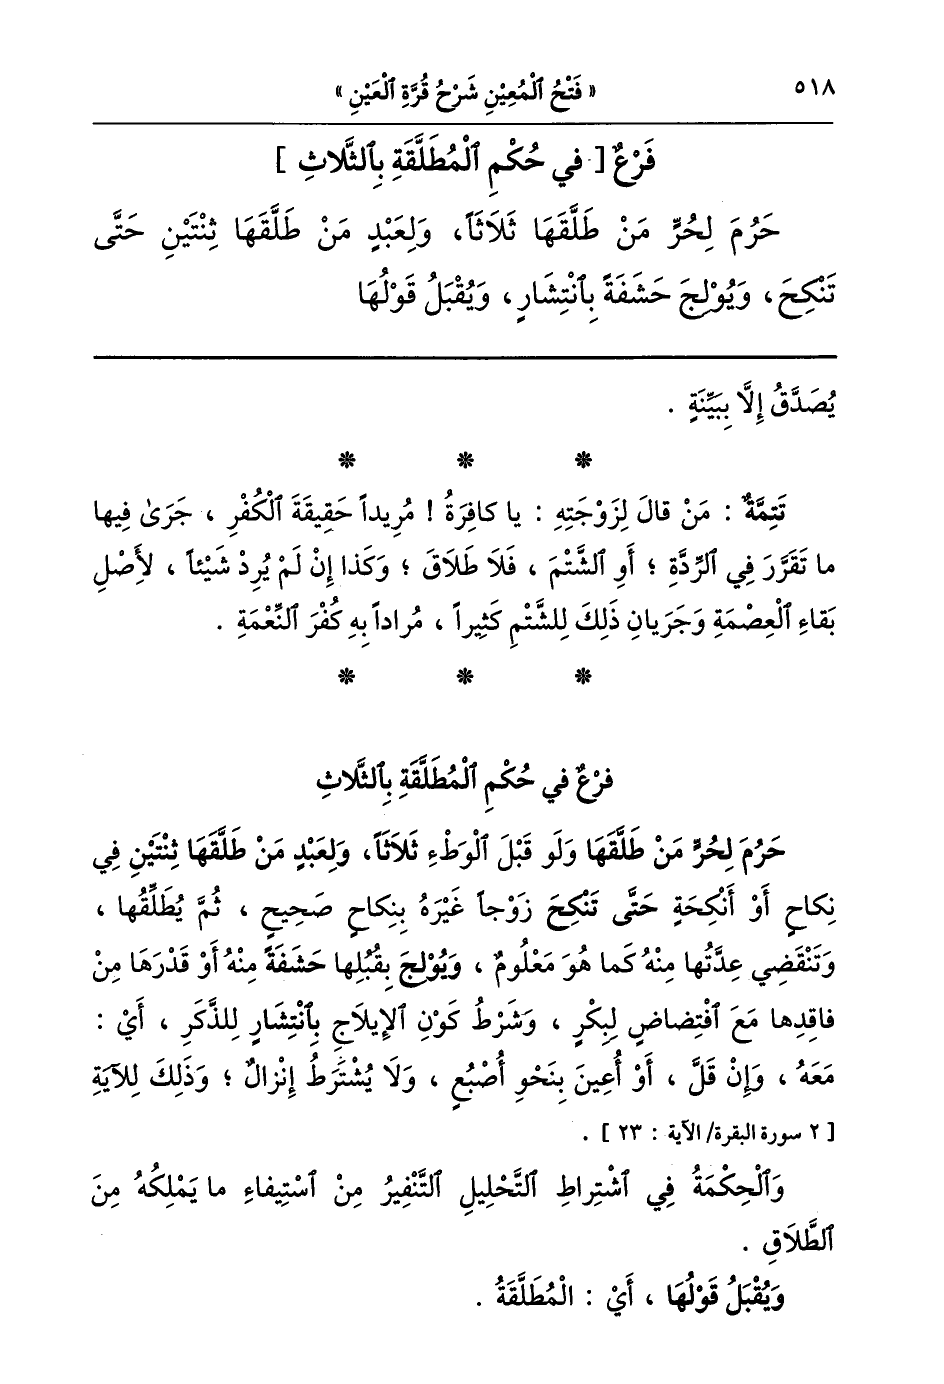 ٥١٨
« فَتْحُ ٱلْمُعِيْنِ شَرْحُ قُرَّةِ ٱلْعَيْنِ »
فَرْعٌ [ في حُكْمِ ٱلْمُطَلَّقَةِ بِٱلثَّلاثِ ]
حَرُمَ لِحُرٍّ مَنْ طَلَّقَهَا ثَلَاثَاً، وَلِعَبْدٍ مَنْ طَلَّقَهَا ثِنْتَيْنِ حَتَّى
تَنْكِحَ، وَيُوْلِجَ حَشَفَةً بِٱنْتِشَارٍ، وَيُقْبَلُ قَوْلُهَا
يُصَدَّقُ إِلَّا بِبَيِّنَةٍ .
* * *
تَتِمَّةٌ : مَنْ قالَ لِزَوْجَتِهِ : يا كافِرَةُ ! مُرِيداً حَقِيقَةَ ٱلْكُفْرِ ، جَرَىٰ فِيها
ما تَقَرَّرَ فِي ٱلرِّدَّةِ ؛ أَوِ ٱلشَّتْمَ ، فَلَا طَلَاقَ ؛ وَكَذا إِنْ لَمْ يُرِدْ شَيْئاً ، لأَصْلِ
بَقاءِ ٱلْعِصْمَةِ وَجَرَيانِ ذَلِكَ لِلشَّتْمِ كَثِيراً ، مُراداً بِهِ كُفْرَ ٱلنِّعْمَةِ .
* * *
فرْعٌ في حُكْمِ ٱلْمُطَلَّقَةِ بِٱلثَّلاثِ
حَرُمَ لِحُرٍّ مَنْ طَلَّقَهَا وَلَو قَبْلَ ٱلْوَطْءِ ثَلَاثَاً، وَلِعَبْدٍ مَنْ طَلَّقَهَا ثِنْتَيْنِ فِي
نِكاحٍ أَوْ أَنْكِحَةٍ حَتَّى تَنْكِحَ زَوْجاً غَيْرَهُ بِنِكاحٍ صَحِيحٍ ، ثُمَّ يُطَلِّقُها ،
وَتَنْقَضِي عِدَّتُها مِنْهُ كَما هُوَ مَعْلُومٌ ، وَيُوْلِجَ بِقُبُلِها حَشَفَةً مِنْهُ أَوْ قَدْرَهَا مِنْ
فاقِدِها مَعَ ٱفْتِضاضٍ لِبِكْرٍ ، وَشَرْطُ كَوْنِ ٱلإِيلَاجِ بِٱنْتِشَارٍ لِلذَّكَرِ ، أَيْ :
مَعَهُ ، وَإِنْ قَلَّ ، أَوْ أُعِينَ بِنَحْوِ أُصْبُعٍ ، وَلَا يُشْتَرَطُ إِنْزالٌ ؛ وَذَلِكَ لِلآيَةِ
[ ٢ سورة البقرة/ الآية : ٢٣ ] .
وَٱلْحِكْمَةُ فِي ٱشْتِراطِ ٱلتَّحْلِيلِ ٱلتَّنْفِيرُ مِنْ ٱسْتِيفاءِ ما يَمْلِكُهُ مِنَ
ٱلطَّلَاقِ .
وَيُقْبَلُ قَوْلُهَا ، أَيْ : الْمُطَلَّقَةُ .